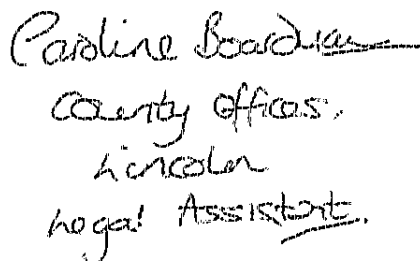 Caroline Boardman
County Offices,
Lincoln
Legal Assistant.